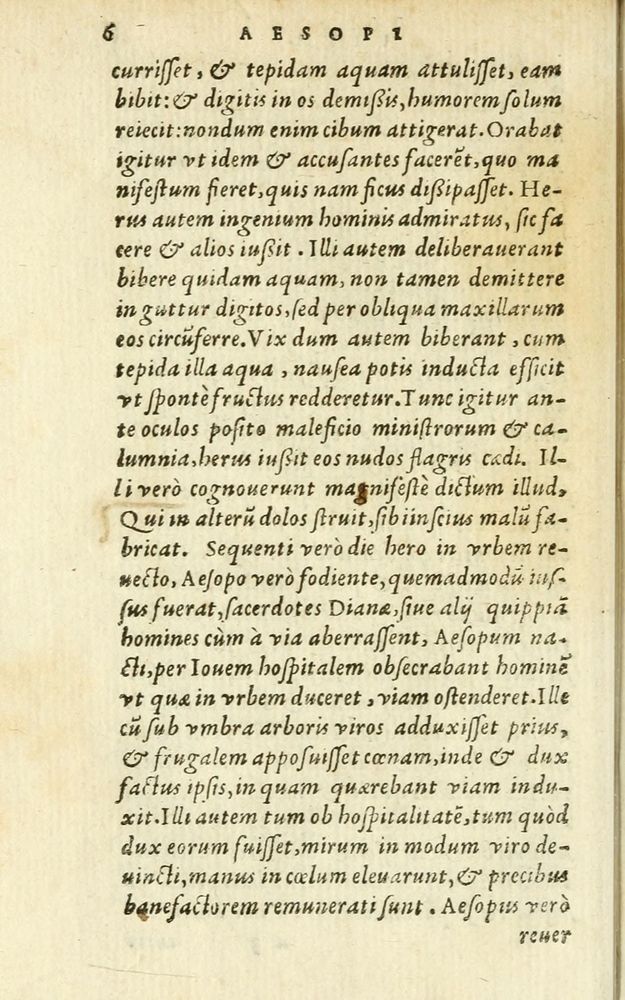 6 AESOPI
currisset, & tepidam aquam attulisset, eam
bibit: & digitis in os demißis, humorem solum
reiecit: nondum enim cibum attigerat. Orabat
igitur vt idem & accusantes facerẽt, quo ma
nifestum fieret, quis nam ficus dißipasset. He-
rus autem ingenium hominis admiratus, sic fa
cere & alios iußit. Illi autem deliberauerant
bibere quidam aquam, non tamen demittere
in guttur digitos, sed per obliqua maxillarum
eos circũferre. Vix dum autem biberant, cum
tepida illa aqua, nausea potis inducta efficit
vt spontè fructus redderetur. Tunc igitur an-
te oculos posito maleficio ministrorum & ca-
lumnia, herus iußit eos nudos flagris cædi. Il-
li verò cognouerunt magnifestè dictum illud,
Qui in alterũ dolos struit, sibi inscius malũ fa-
bricat. Sequenti verò die hero in vrbem re-
uecto, Aesopo verò fodiente, quemadmodũ ius-
sus fuerat, sacerdotes Dianæ, siue alij quippiã
homines cùm à via aberrassent, Aesopum na-
cti, per Iouem hospitalem obsecrabant hominẽ
vt quæ in vrbem duceret, viam ostenderet. Ille
cũ sub vmbra arboris viros adduxisset prius,
& frugalem apposuisset cœnam, inde & dux
factus ipsis, in quam quærebant viam indu-
xit. Illi autem tum ob hospitalitatẽ, tum quòd
dux eorum fuisset, mirum in modum viro de-
uincti, manus in cœlum eleuarunt, & precibus
benefactorem remunerati sunt. Aesopus verò
reuer